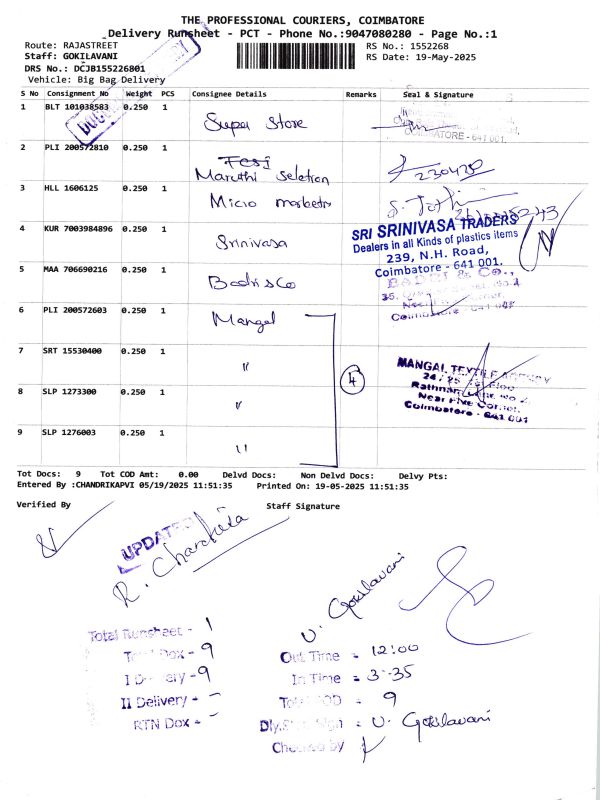 THE PROFESSIONAL COURIERS, COIMBATORE
Delivery Runsheet - PCT - Phone No.:9047080280 - Page No.:1
Route: RAJASTREET
RS No.: 1552268
Staff: GOKILAVANI
RS Date: 19-May-2025
DRS No.: DCJB155226801
Vehicle: Big Bag Delivery
S No Consignment No Weight PCS Consignee Details Remarks Seal & Signature
1 BLT 101038583 0.250 1 Super Store
COIMBATORE - 641 001.
2 PLI 200572810 0.250 1 Maruthi Seletion 230420
3 HLL 1606125 0.250 1 Micro marketrs
4 KUR 7003984896 0.250 1 Srinivasa
SRI SRINIVASA TRADERS
Dealers in all Kinds of plastics items
239, N.H. Road,
Coimbatore - 641 001.
5 MAA 706690216 0.250 1 Badri & Co
BADRI & Co.,
Coimbatore - 641 001
6 PLI 200572603 0.250 1 Mangal
7 SRT 15530400 0.250 1 "
4
MANGAL TEXTILE AGENCY
24 / 25
Near Five Corner,
Coimbatore - 641 001
8 SLP 1273300 0.250 1 "
9 SLP 1276003 0.250 1 "
Tot Docs: 9 Tot COD Amt: 0.00 Delvd Docs: Non Delvd Docs: Delvy Pts:
Entered By :CHANDRIKAPVI 05/19/2025 11:51:35 Printed On: 19-05-2025 11:51:35
Verified By Staff Signature
UPDATED
U. Gokilavani
Total Runsheet - 1
Total Dox - 9
I Delivery - 9
II Delivery - -
RTN Dox - -
Out Time = 12:00
In Time = 3-35
Total = 9
Dly.Staff Sign = U. Gokilavani
Checked by